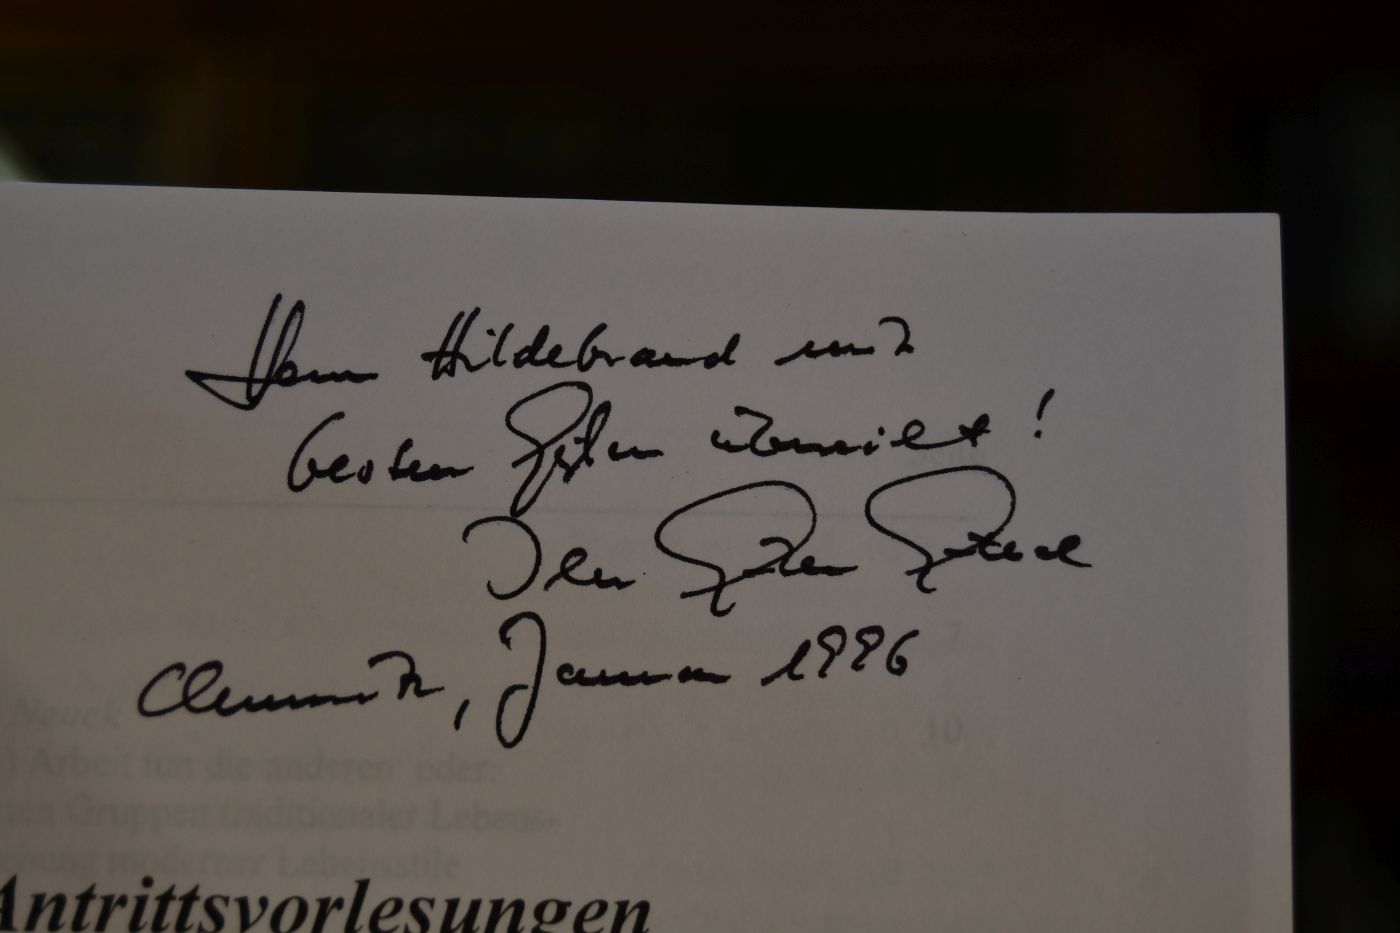 Herrn Hildebrand mit
besten Grüßen überreicht!
Ihr
Chemnitz, Januar 1996
Nauck
10
) Arbeit tun die anderen oder
Gruppen traditionaler Lebens-
moderner Lebensstile
Antrittsvorlesungen